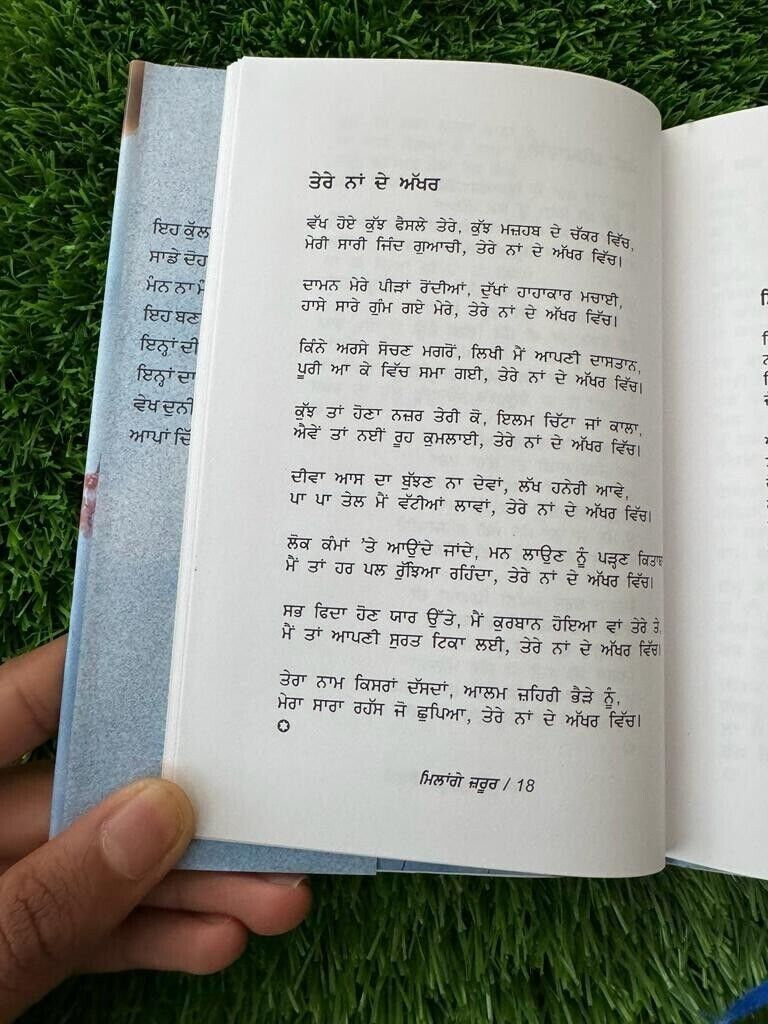 ਤੇਰੇ ਨਾਂ ਦੇ ਅੱਖਰ
ਵੱਖ ਹੋਏ ਕੁੱਝ ਫੈਸਲੇ ਤੇਰੇ, ਕੁੱਝ ਮਜ਼ਹਬ ਦੇ ਚੱਕਰ ਵਿੱਚ,
ਮੇਰੀ ਸਾਰੀ ਜਿੰਦ ਗੁਆਚੀ, ਤੇਰੇ ਨਾਂ ਦੇ ਅੱਖਰ ਵਿੱਚ।
ਦਾਮਨ ਮੇਰੇ ਪੀੜਾਂ ਰੋਂਦੀਆਂ, ਦੁੱਖਾਂ ਹਾਹਾਕਾਰ ਮਚਾਈ,
ਹਾਸੇ ਸਾਰੇ ਗੁੰਮ ਗਏ ਮੇਰੇ, ਤੇਰੇ ਨਾਂ ਦੇ ਅੱਖਰ ਵਿੱਚ।
ਕਿੰਨੇ ਅਰਸੇ ਸੋਚਣ ਮਗਰੋਂ, ਲਿਖੀ ਮੈਂ ਆਪਣੀ ਦਾਸਤਾਨ,
ਪੂਰੀ ਆ ਕੇ ਵਿੱਚ ਸਮਾ ਗਈ, ਤੇਰੇ ਨਾਂ ਦੇ ਅੱਖਰ ਵਿੱਚ।
ਕੁੱਝ ਤਾਂ ਹੋਣਾ ਨਜ਼ਰ ਤੇਰੀ ਕੋ, ਇਲਮ ਚਿੱਟਾ ਜਾਂ ਕਾਲਾ,
ਐਵੇਂ ਤਾਂ ਨਈਂ ਰੂਹ ਕੁਮਲਾਈ, ਤੇਰੇ ਨਾਂ ਦੇ ਅੱਖਰ ਵਿੱਚ।
ਦੀਵਾ ਆਸ ਦਾ ਬੁੱਝਣ ਨਾ ਦੇਵਾਂ, ਲੱਖ ਹਨੇਰੀ ਆਵੇ,
ਪਾ ਪਾ ਤੇਲ ਮੈਂ ਵੱਟੀਆਂ ਲਾਵਾਂ, ਤੇਰੇ ਨਾਂ ਦੇ ਅੱਖਰ ਵਿੱਚ।
ਲੋਕ ਕੰਮਾਂ 'ਤੇ ਆਉਂਦੇ ਜਾਂਦੇ, ਮਨ ਲਾਉਣ ਨੂੰ ਪੜ੍ਹਣ
ਮੈਂ ਤਾਂ ਹਰ ਪਲ ਰੁੱਝਿਆ ਰਹਿੰਦਾ, ਤੇਰੇ ਨਾਂ ਦੇ ਅੱਖਰ ਵਿੱਚ।
ਸਭ ਫਿਦਾ ਹੋਣ ਯਾਰ ਉੱਤੇ, ਮੈਂ ਕੁਰਬਾਨ ਹੋਇਆ ਵਾਂ ਤੇਰੇ ਤੇ,
ਮੈਂ ਤਾਂ ਆਪਣੀ ਸੁਰਤ ਟਿਕਾ ਲਈ, ਤੇਰੇ ਨਾਂ ਦੇ ਅੱਖਰ ਵਿੱਚ।
ਤੇਰਾ ਨਾਮ ਕਿਸਰਾਂ ਦੱਸਦਾਂ, ਆਲਮ ਜ਼ਹਿਰੀ ਭੈੜੇ ਨੂੰ,
ਮੇਰਾ ਸਾਰਾ ਰਹੱਸ ਜੋ ਛੁਪਿਆ, ਤੇਰੇ ਨਾਂ ਦੇ ਅੱਖਰ ਵਿੱਚ।
ਮਿਲਾਂਗੇ ਜ਼ਰੂਰ / 18
ਇਹ
ਸਾਡੇ
ਮੰਨ ਨਾ
ਇਹ
ਇਨ੍ਹਾਂ ਦੀ
ਇਨ੍ਹਾਂ ਦਾ
ਵੇਖ
ਆਪਾਂ